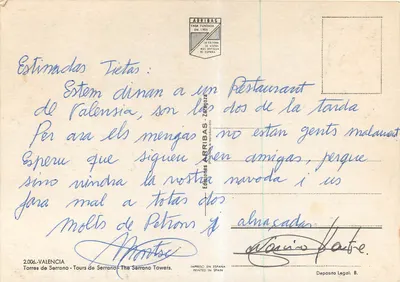 ARRIBAS
Estimadas Tietas:
Estem dinan a un Restaurant
de Valensia, son les dos de la tarda
Per ara els mengas no estan gents malament
Espero que sigueu ben amigas, perque
sino vindra la vostra navoda i us
fara mal a totas dos
Molts de Petons y abraçadas
Montse
Ediciones ARRIBAS - Zaragoza
2.006.-VALENCIA
Torres de Serrano - Tours de Serrano - The Serrano Towers.
IMPRESO EN ESPAÑA
PRINTED IN SPAIN
Deposito Legal: B.